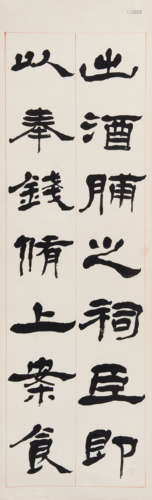 出酒脯之祠臣即
以奉錢脩上案食